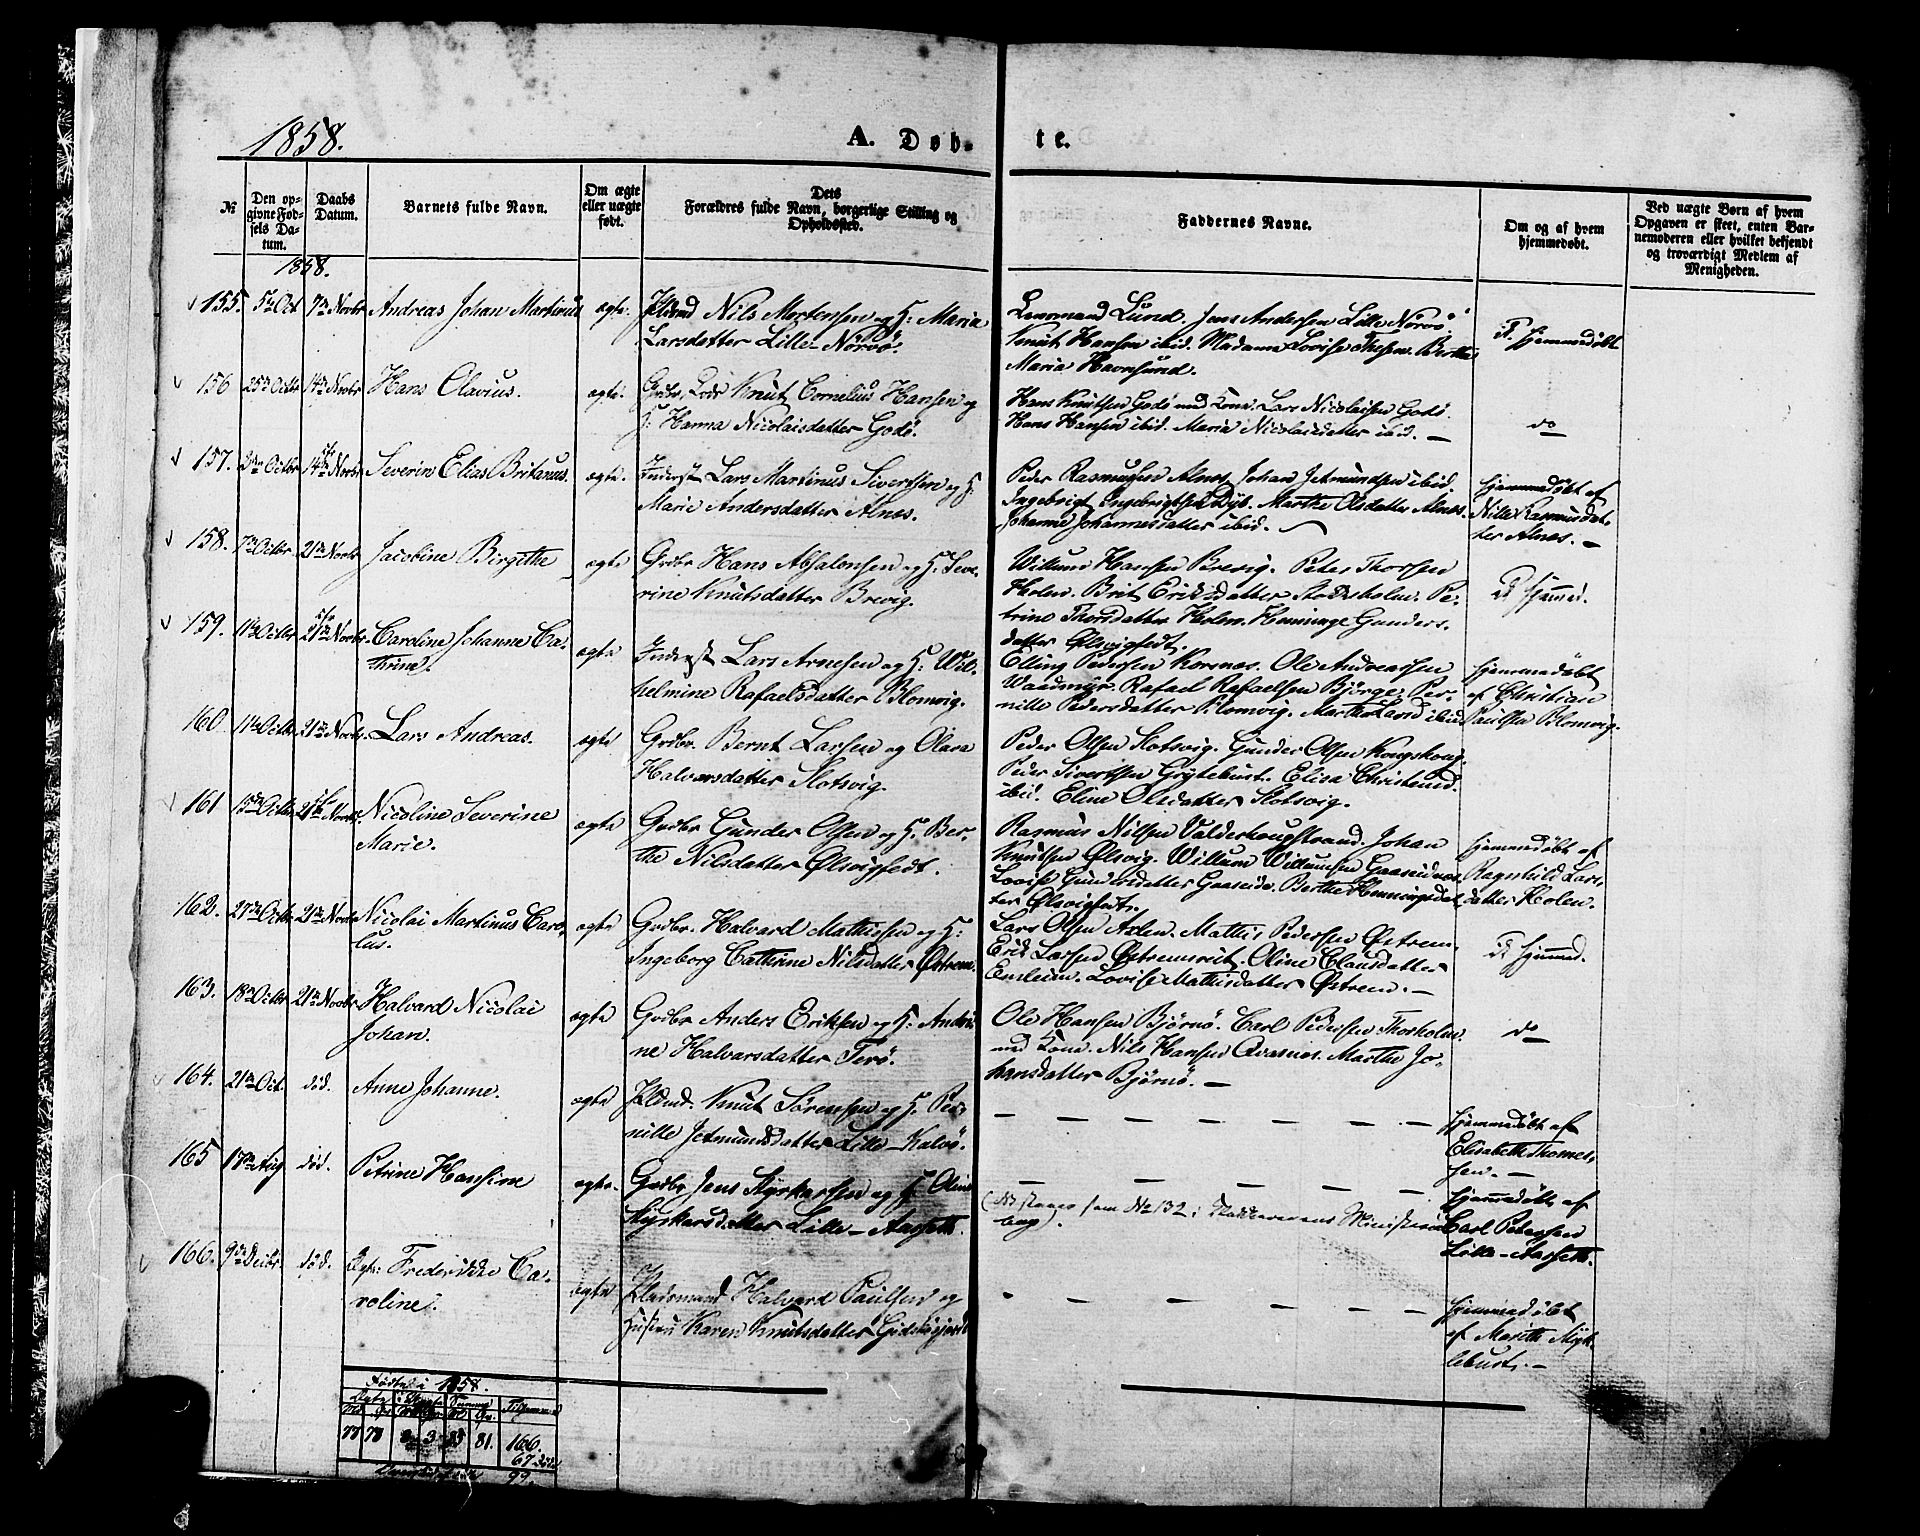 1858.
A. Døb-
te.
№
Den op-
givne Fød-
sels Da-
tum.
Daabs
Datum.
Barnets fulde Navn.
Om ægte
eller uægte
født.
Forældres fulde Navn, borgerlige Stilling og
Opholdssted.
Faddernes Navne.
Om og af hvem
hjemmedøbt.
Ved uægte Børn af hvem
Opgaven er skeet, enten Bar-
nemoderen eller hvilket bekjendt
og troværdigt Medlem af
Menigheden.
1858.
155. 5te Oct 7de Novbr Andreas Johan Martinus ægte. Nils Mortensen og H: Maria
Larsdatter Lille-Nörvö.
Lensmand Lund. Jens Andersen Lille Nörvö.
Knut Hansen ibid. Madame Lovise Thesen. Berthe
Maria Havnsund.
hjemmedöbt
156 25de Octbr 14de Novbr Hans Olavius. ægte. Knut Cornelius Hansen og
H: Hanna Nicolaisdatter Godö.
Hans Knutsen Godö med Kone. Lars Nicolaisen Godö.
Hans Hansen ibid. Maria Nicolaisdatter ibid. —
do
157. Octbr 14de Novbr Severin Elias Britanus. ægte. Inderst Lars Martinus Sivertsen og H:
Marie Andersdatter Alnes.
Peder Rasmussen Alnes. Johan Jetmundsen ibid.
Ingebrigt Ingebrigtsen Dyb. Marthe Olsdatter Alnes.
Johanne Johannesdatter ibid. —
hjemmedöbt af
Nille Rasmusdat-
ter Alnes. —
158. 7de Octbr 21de Novbr Jacobine Birgithe ægte Grdbr Hans Absalonsen og H: Seve-
rine Knutsdatter Brevig.
Willum Hansen Brevig. Peter Thorsen
Holen. Brit Eriksdatter Stokholm. Pe-
trine Thorsdatter Holen. Henninge Gunders-
datter Ølsvigfedt.
hjemmed.
159. 11te Octbr 21de Novbr Caroline Johanne Ca-
thrine. ægte Inderst Lars Arnesen og H: Wil-
helmine Rafaelsdatter Blomvig.
Elling Pedersen Korsnes. Ole Andreassen
Waadmyr. Rafael Rafaelsen Björge. Per-
nille Pedersdatter Blomvig. ibid
hjemmedöbt
af Christian
Paulsen Blomvig.
160. 11te Octbr 21de Novbr. Lars Andreas. ægte Grdbr. Bernt Larsen og Olava
Halvorsdatter Slotsvig.
Peder Olsen Slotsvig. Gunder Olsen Kongshoug.
Peder Sivertsen Grytebust. Elisa Christensd.
ibid. Eline Olsdatter Slotsvig.
161 15de Octbr 21de Novbr. Nicoline Severine
Marie. ægte Grdbr Gunder Olsen og H. Ber-
the Nilsdatter Ølsvigfedt.
Rasmus Nilsen Valderhougstrand. Johan
Knutsen Ølsvig. Willum Willumsen Gaaseidnes.
Lovise Gundersdatter Gaaseide. Berthe Henningsdat-
ter Ølsvigfedt.
hjemmedöbt af
Ragnhild Lars-
datter Holen.
162. 27de Octbr 21de Novbr Nicolai Martinus Caro-
lus. ægte Grdbr. Halvard Mathissen og H:
Ingeborg Cathrine Nilsdatter Østrem.
Lars Olsen Aslen. Mathis Pedersen Østrem.
Erik Larsen Østremsvik. Oline Clausdatter
Emleim. Lovise Mathisdatter Østrem. —
hjemmed.
163. 18de Octbr 21de Novbr Halvard Nicolai
Johan. ægte Grdbr Anders Eriksen og H. Andri-
ne Halvarsdatter Terö.
Ole Hansen Björnö. Carl Pedersen Thorholm.
med Kone. Nils Hansen Qvasnes. Marthe Jo-
hansdatter Björnö. —
do
164. 21de Oct. död. Anne Johanne. ægte Knut Sörensen og H. Per-
nille Jetmundsdatter Lille-Kalvö.
— — — — — — —
hjemmedöbt af
Elisabeth Thomes-
sen. —
165 17de Aug död. Petrine Hansine ægte. Grdbr Jens Styrkarsen og H Oline
Styrkarsdatter Lille-Aaseth.
— — — — — — —
som No 132 i Ministerial-
bog).
hjemmedöbt af
Carl Petersen
Lille-Aaseth.
166. 9de Decbr. död. Frederikke Ca-
roline. ægte Pladsmand Halvard Paulsen og
Hustru Karen Knutsdatter
— — — — — — —
hjemmedöbt
af Marithe Myk-
lebust. —
Födte i 1858.
Ægte Tilsammen
77 78 3 81. 166.
67 döde
99.